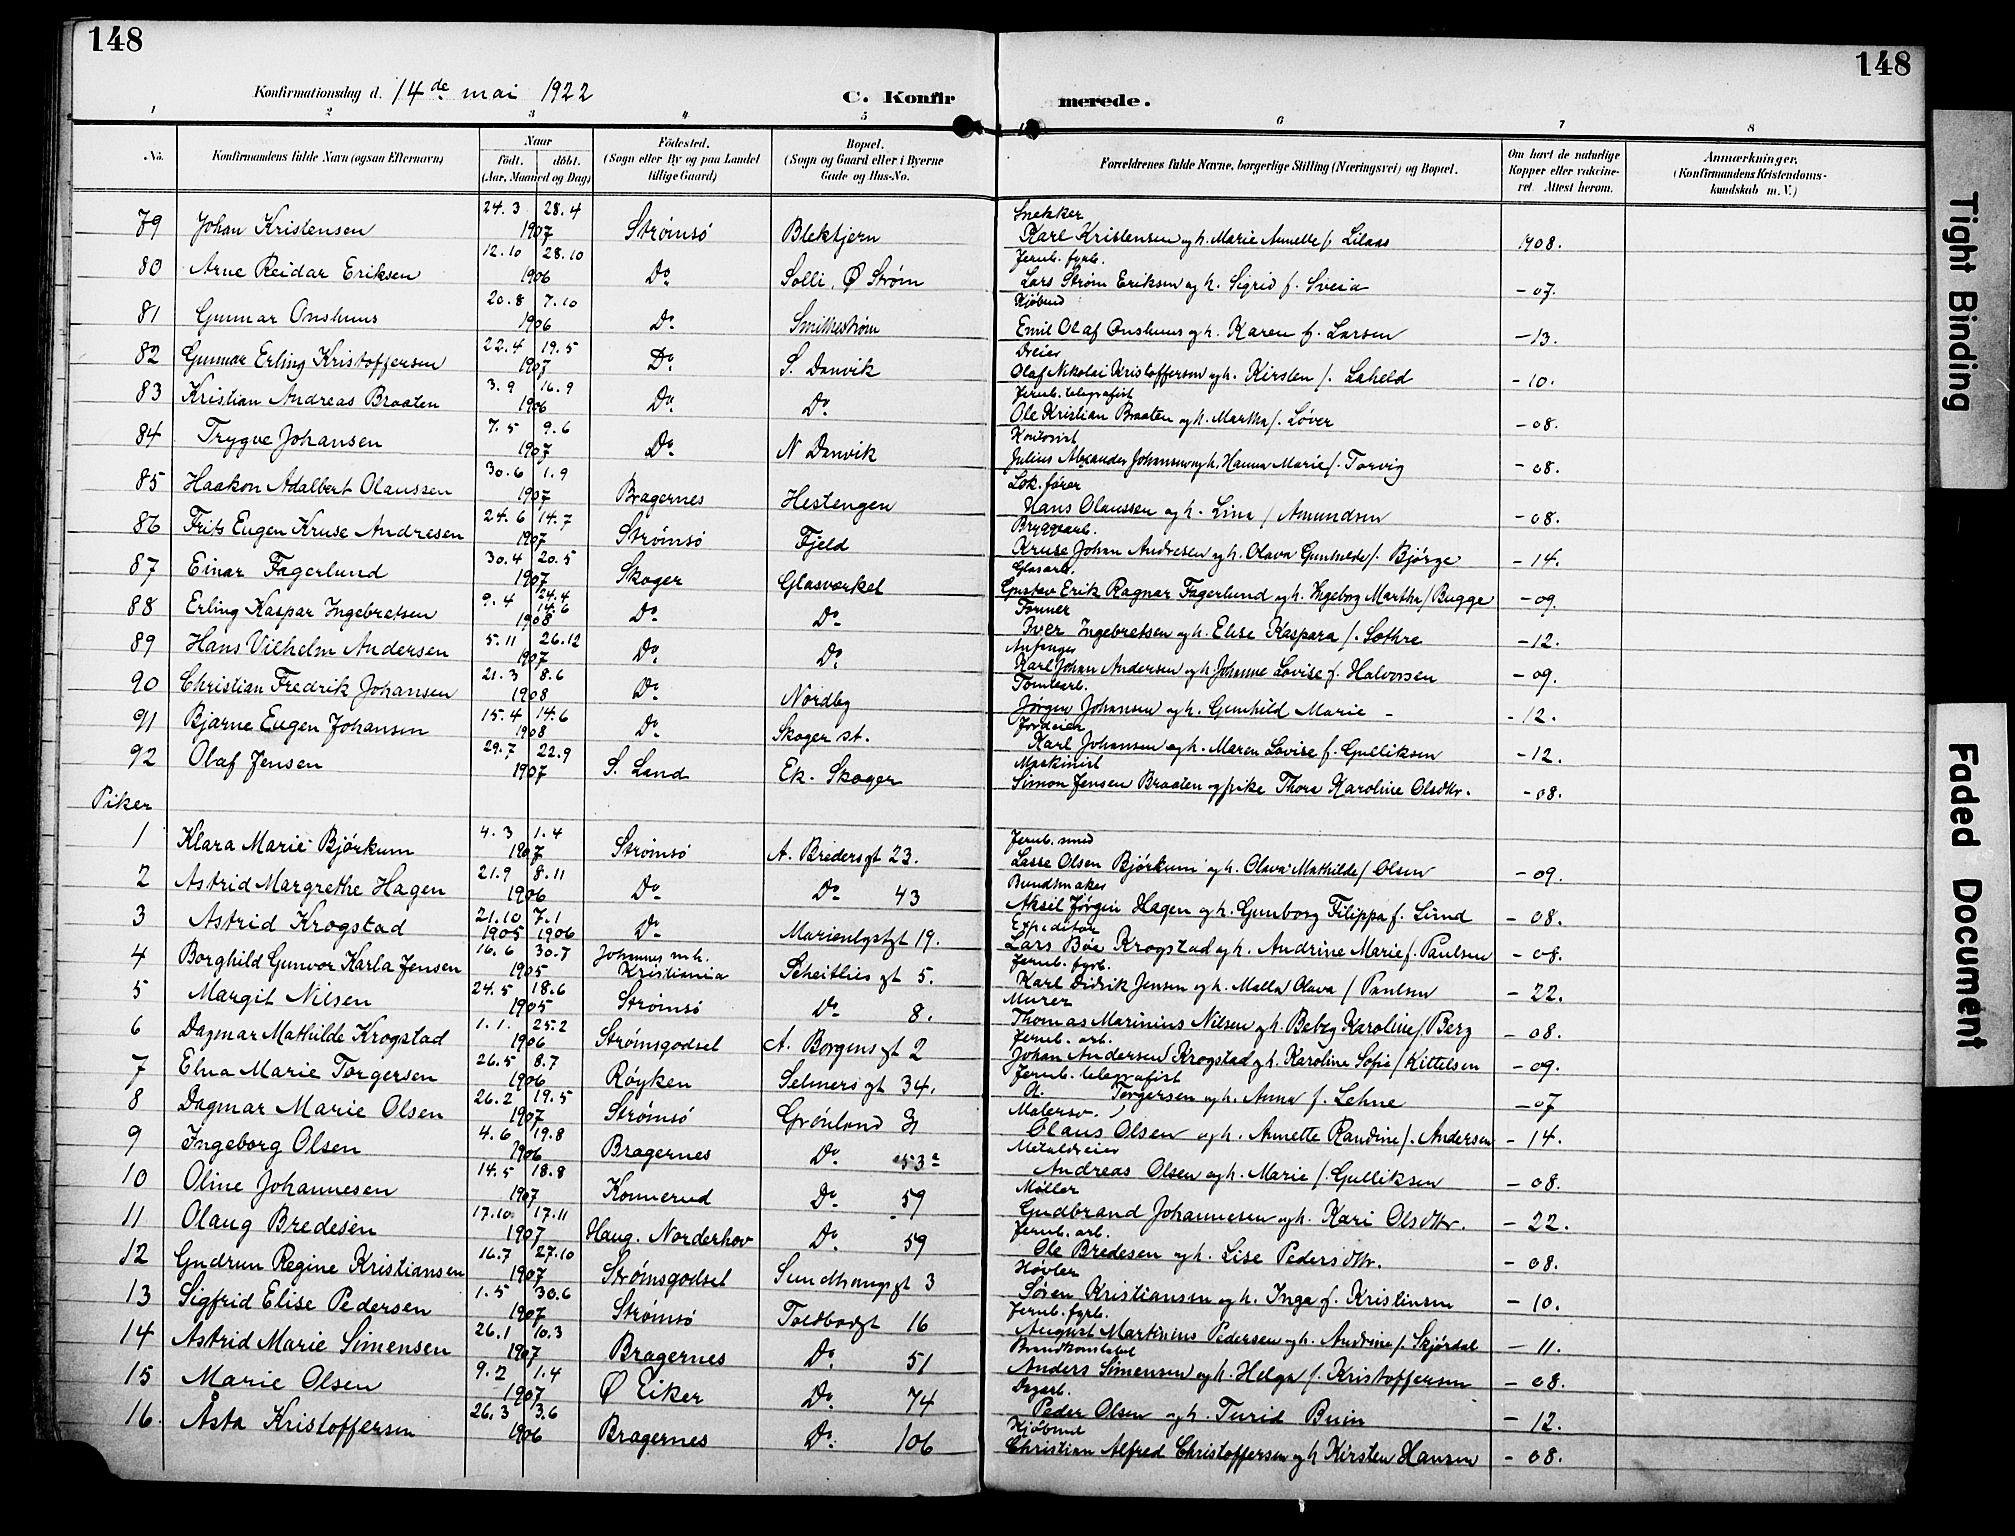 148
148
Konfirmationsdag d. 14de mai 1922
C. Konfirmerede.
1 2 3 4 5 6 7 8
No.
Konfirmandens fulde Navn (ogsaa Efternavn)
Naar
født. døbt.
(Aar, Maaned og Dag)
Fødested.
(Sogn eller By og paa Landet
tillige Gaard)
Bopæl.
(Sogn og Gaard eller i Byerne
Gade og Hus-No.
Forældrenes fulde Navne, borgerlige Stilling (Næringsvei) og Bopæl.
Om havt de naturlige
Kopper eller vakcine-
ret. Attest herom.
Anmærkninger,
(Konfirmandens Kristendoms-
kundskab m. V.)
79 Johan Kristensen 24.3 28.4 1907 Strømsø Blektjern Snekker Karl Kristensen og h. Marie Annette f. Lilaas 1908.
80 Arne Reidar Eriksen 12.10 28.10 1906 Do Solli, Ø Strøm Jernb. fyrb. Lars Strøm Eriksen og h. Sigrid f. Sveia -07.
81 Gunnar Onshuus 20.8 7.10 1906 Do Smithestrøm Kjøbmd Emil Olaf Onshuus og h. Karen f. Larsen -13.
82 Gunnar Erling Kristoffersen 22.4 19.5 1907 Do S. Danvik Dreier Olaf Nikolai Kristoffersen og h. Kirsten f. Laheld -10.
83 Kristian Andreas Braaten 3.9 16.9 1906 Do Do Jernb. telegrafist Ole Kristian Braaten og h. Martha f. Løver -08.
84 Trygve Johansen 7.5 9.6 1907 Do N Danvik Kontorist Julius Alexander Johansen og h. Hanna Marie f. Torvig -08.
85 Haakon Adalbert Olaussen 30.6 1.9 1907 Bragernes Hestengen Lok. fører Hans Olaussen og h. Lina f Amundsen -08.
86 Frits Eugen Kruse Andresen 24.6 14.7 1907 Strømsø Fjeld Bryggearb. Kruse Johan Andresen og h. Olava Gunhilde f. Bjørge -14.
87 Einar Fagerlund 30.4 20.5 1907 Skoger Glasverket Glasarb. Gustav Erik Ragnar Fagerlund og h. Ingeborg Martha f Bugge -09.
88 Erling Kaspar Ingebretsen 9.4 24.4 14.6 1908 Do Do Former Iver Ingebretsen og h. Elise Kaspara f. Sothre -12.
89 Hans Vilhelm Andersen 5.11 26.12 1907 Do Do Anfanger Karl Johan Andersen og h. Johanne Lovise f. Halvorsen -09.
90 Christian Fredrik Johansen 21.3 8.6 1908 Do Nordby Tomtearb. Jørgen Johansen og h. Gunhild Marie - -12.
91 Bjarne Eugen Johansen 15.4 14.6 1908 Do Skoger st. Jordeier Karl Johansen og h. Maren Lovise f. Gulliksen -12.
92 Olaf Jensen 29.7 22.9 1907 S. Land Ek. Skoger Maskinist Simon Jensen Braaten og pike Thora Karoline Olsdtr. -08.
Piker
1 Klara Marie Bjørkum 4.3 1.4 1907 Strømsø A. Bredersgt 23. Jernb. smed Lasse Olsen Bjørkum og h. Olava Mathilde f Olsen -09.
2 Astrid Margrethe Hagen 21.9 8.11 1906 Do Do 43 Bundtmaker Aksel Jørgen Hagen og h. Gunborg Filippa f. Lund -08.
3 Astrid Krogstad 21.10 1905 7.1 1906 Do Marienlystgt 19. Expeditør Lars Bøe Krogstad og h. Andrine Marie f. Paulsen -08.
4 Borghild Gunvor Karla Jensen 16.6 30.7 1905 Johannes m.h. Kristiania Scheitliesgt 5. Jernb. fyrb. Karl Didrik Jensen og h. Malla Olava f Paulsen -22.
5 Margit Nilsen 24.5 18.6 1905 Strømsø Do 8. Murer Thomas Marinius Nilsen og h. Beboy Karoline f. Berg -08.
6 Dagmar Mathilde Krogstad 1.1. 25.2 1906 Strømsgodset A. Borgensgt 2 Jernb. arb. Johan Andersen Krogstad og h. Karoline Sofie f Kittelsen -09.
7 Elna Marie Torgersen 26.5 8.7 1906 Røyken Selmersgt 34. Jernb. telegrafist O. Torgersen og h. Anna f. Lehne -07
8 Dagmar Marie Olsen 26.2 19.5 1907 Strømsø Grønland 31 Malersv. Claus Olsen og h. Annette Randine f. Andersen -14.
9 Ingeborg Olsen 4.6 19.8 1906 Bragernes Do 53a Metaldreier Andreas Olsen og h. Marie f. Gulliksen -08.
10 Oline Johannesen 14.5 18.8 1907 Konnerud Do 59 Møller Gudbrand Johannesen og h. Kari Olsdtr. -22.
11 Olaug Bredesen 17.10 17.11 1907 Haug. Norderhov Do 59 Jernb. arb. Ole Bredesen og h. Lise Pedersdtr. -08.
12 Gudrun Regine Kristiansen 16.7 27.10 1907 Strømsgodset Sundhaugsgt 3 Høvler Søren Kristiansen og h. Inga f. Kristiansen -10.
13 Sigfrid Elise Pedersen 1.5 30.6 1907 Strømsø Toldbodgt 16 Jernb. fyrb. August Martinius Pedersen og h. Andrine f. Skjørdal -11.
14 Astrid Marie Simensen 26.1 10.3 1907 Bragernes Do 51 Brandkonstabel Anders Simensen og h. Helga f. Kristoffersen -08.
15 Marie Olsen 9.2 1.4 1907 Ø Eiker Do 74 Dagarb. Peder Olsen og h. Turid Buin -12.
16. Åsta Kristoffersen 26.3 3.6 1906 Bragernes Do 106 Kjøbmd Christian Alfred Christoffersen og h Kirsten Hansen -08.
Tight Binding
Faded Document